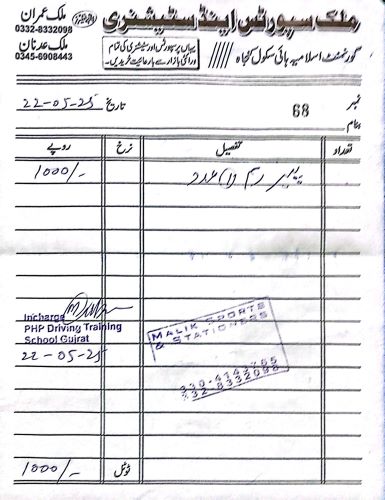 ملک سپورٹس اینڈ سٹیشنری
ملک عمران
0332-8332098
ملک عدنان
0345-6908443
یہاں پر سپورٹس اور سٹیشنری کی تمام
ورائٹی بازار سے بارعایت خریدیں۔
گورنمنٹ اسلامیہ ہائی سکول کنجاہ
نمبر 68 تاریخ 22-05-25
بنام
تعداد تفصیل نرخ روپے
پیپر رم (1) عدد 1000/-
MALIK SPORTS
& STATIONERS
332-8332098
Incharge
PHP Driving Training
School Gujrat
22-05-25
ٹوٹل 1000/-